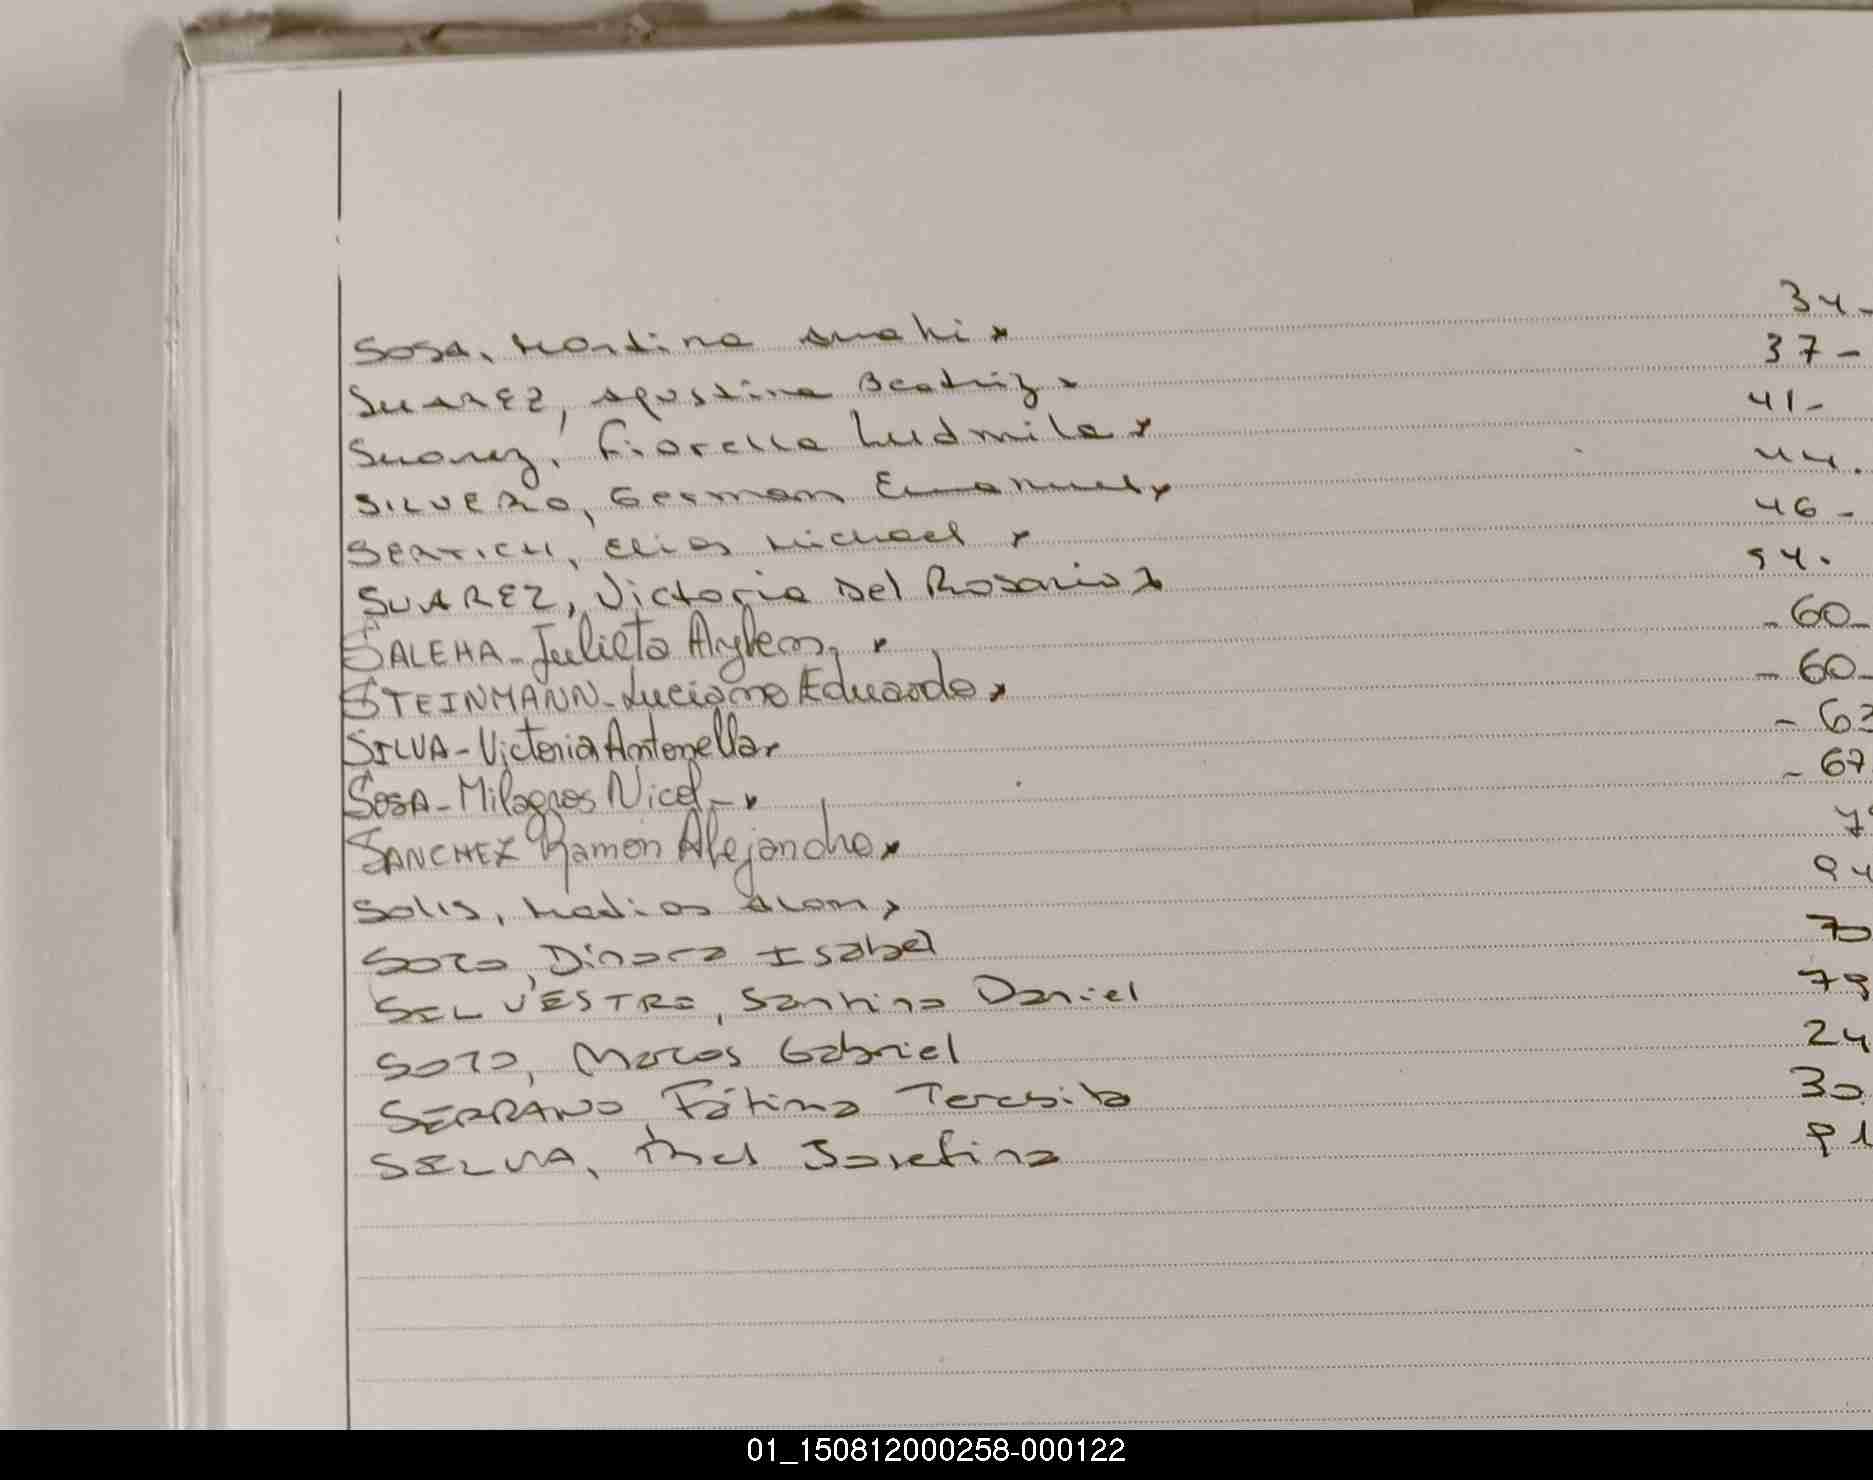 SOSA, Martina Anahi x 34-
SUAREZ, Agustina Beatriz x 37-
Suarez, Fiorella Ludmila x 41-
SILVERO, German Emanuel x 44.
SERTICH, Elias Michael x 46-
SUAREZ, Victoria Del Rosario x 54.
SALEHA - Julieta Aylem. x - 60-
STEINMANN - Luciano Eduardo x - 60-
SILVA - Victoria Antonella x - 63
SOSA - Milagros Nicol - x - 67
SANCHEZ Ramon Alejandro x
SOLIS, Matias Alan x 94
SOTO, Dinora Isabel 70
SILVESTRE, Santino Daniel 79
SOTO, Marcos Gabriel 24
SERRANO, Fátima Teresita 30
SILVA, Josefina 91
01_150812000258-000122